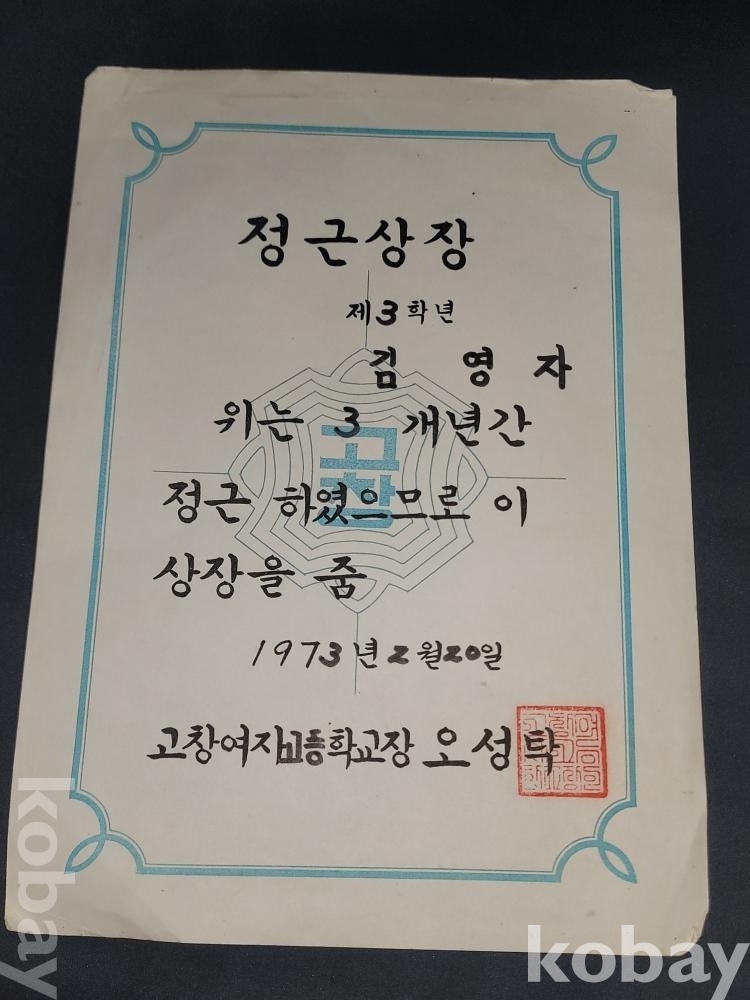 정근상장
제3학년
김 영 자
위는 3 개년간
정근 하였으므로 이
상장을 줌
1973년 2월 20일
고창여자고등학교장 오성탁
고창
kobay
kobay